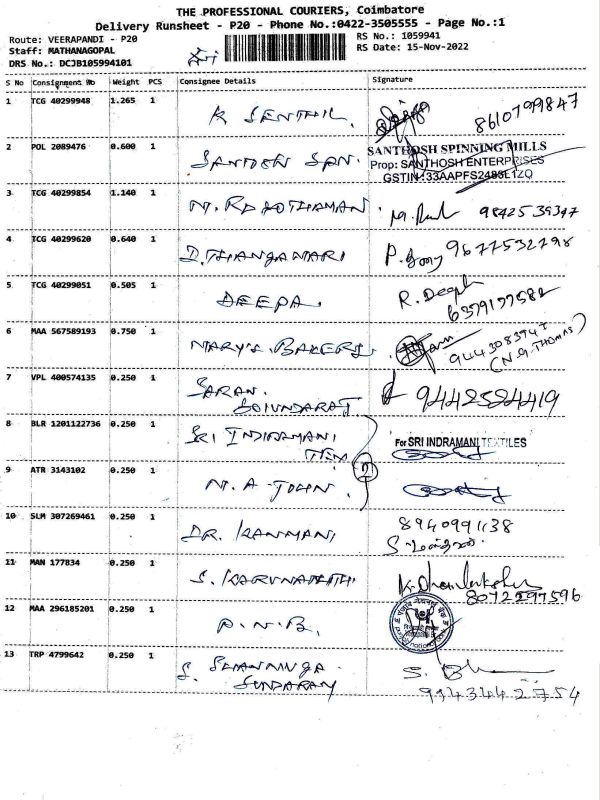 THE PROFESSIONAL COURIERS, Coimbatore
Delivery Runsheet - P20 - Phone No.:0422-3505555 - Page No.:1
Route: VEERAPANDI - P20
Staff: MATHANAGOPAL
DRS No.: DCJB105994101
RS No.: 1059941
RS Date: 15-Nov-2022
S No Consignment No Weight PCS Consignee Details Signature
1 TCG 40299948 1.265 1 K SENTHIL 8610799847
2 POL 2089476 0.600 1
SANTHOSH SPINNING MILLS
Prop: SANTHOSH ENTERPRISES
GSTIN:33AAPFS2486L1ZQ
3 TCG 40299854 1.140 1 9842539347
4 TCG 40299620 0.640 1 D.THANGAMARI 9677532798
5 TCG 40299051 0.505 1 DEEPA. R. Deepa
6379197582
6 MAA 567589193 0.750 1 MARY'S BAKERS.
9443083947
(N.G. THOMAS)
7 VPL 400574135 0.250 1 SARAN. 9442524419
8 BLR 1201122736 0.250 1 SRI INDIRAMANI For SRI INDRAMANI TEXTILES
TEX
9 ATR 3143102 0.250 1 M. A. JOHN.
10 SLM 307269461 0.250 1 DR. KANMANI 8940991138
11 MAN 177834 0.250 1 S. 
8072297596
12 MAA 296185201 0.250 1 P.N.B.
13 TRP 4799642 0.250 1 S. SHANMUGA
SUNDARAM 9143442754